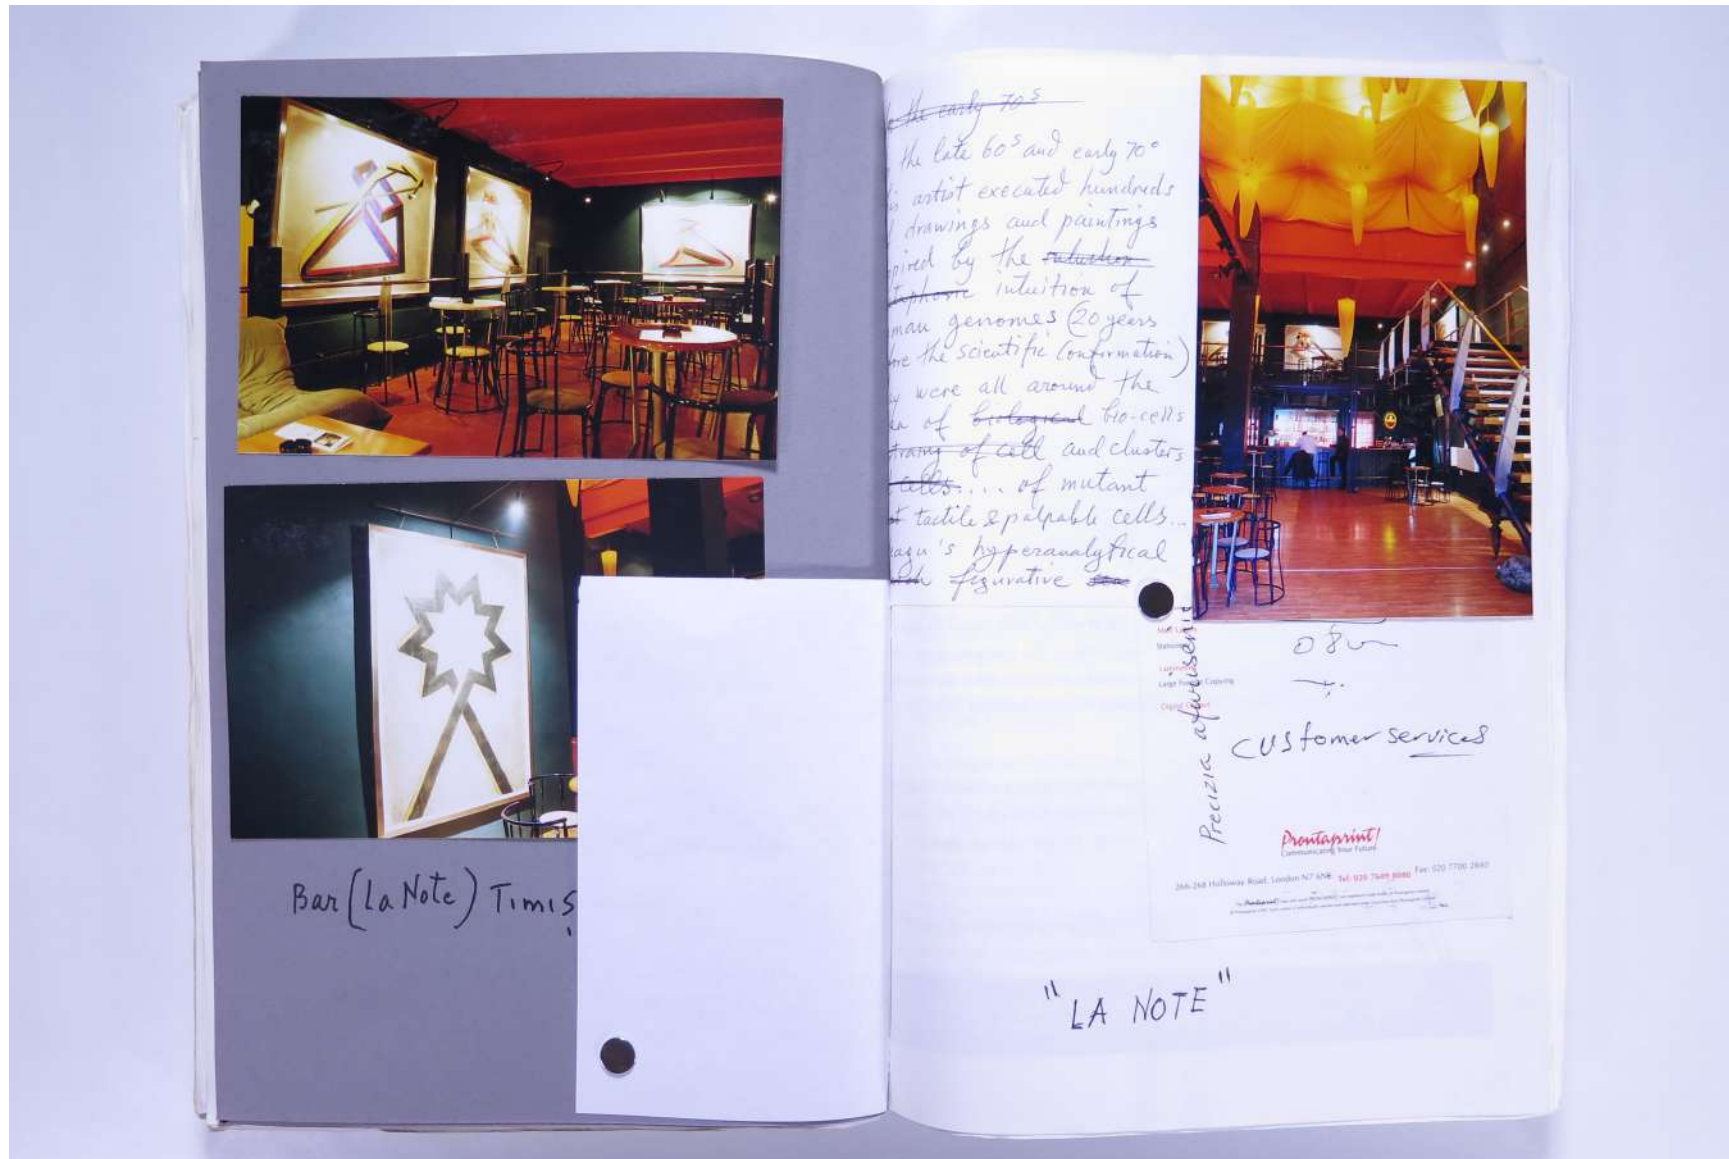 Bar (La Note) Timiș
the early 70s
the late 60s and early 70s
artist executed hundreds
drawings and paintings
pired by the
intuition of
man genomes (20 years
ore the scientific confirmation)
y were all around the
of biological bio-cells
of cell and clusters
cells.... of mutant
tactile & palpable cells...
eagu's hyperanalytical
figurative
Stationery
Large Format Copying
Precizia afurisenie
customer services
Prontaprint!
Communicating Your Future
266-268 Holloway Road, London N7 6NE Tel: 020 7609 8080 Fax: 020 7700 2880
"LA NOTE"